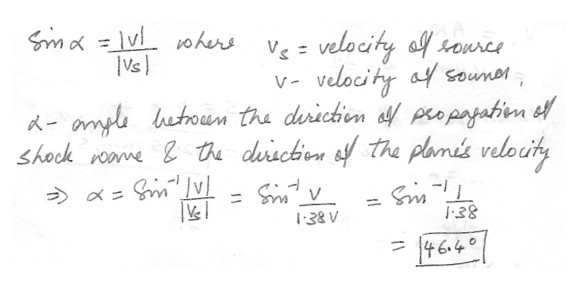 Sin α = |v| / |Vs| where Vs = velocity of source
v - velocity of sound,
α - angle between the direction of propagation of
shock wave & the direction of the plane's velocity
⇒ α = Sin⁻¹ |v| / |Vs| = Sin⁻¹ v / 1.38 V = Sin⁻¹ 1 / 1.38
= 46.4°